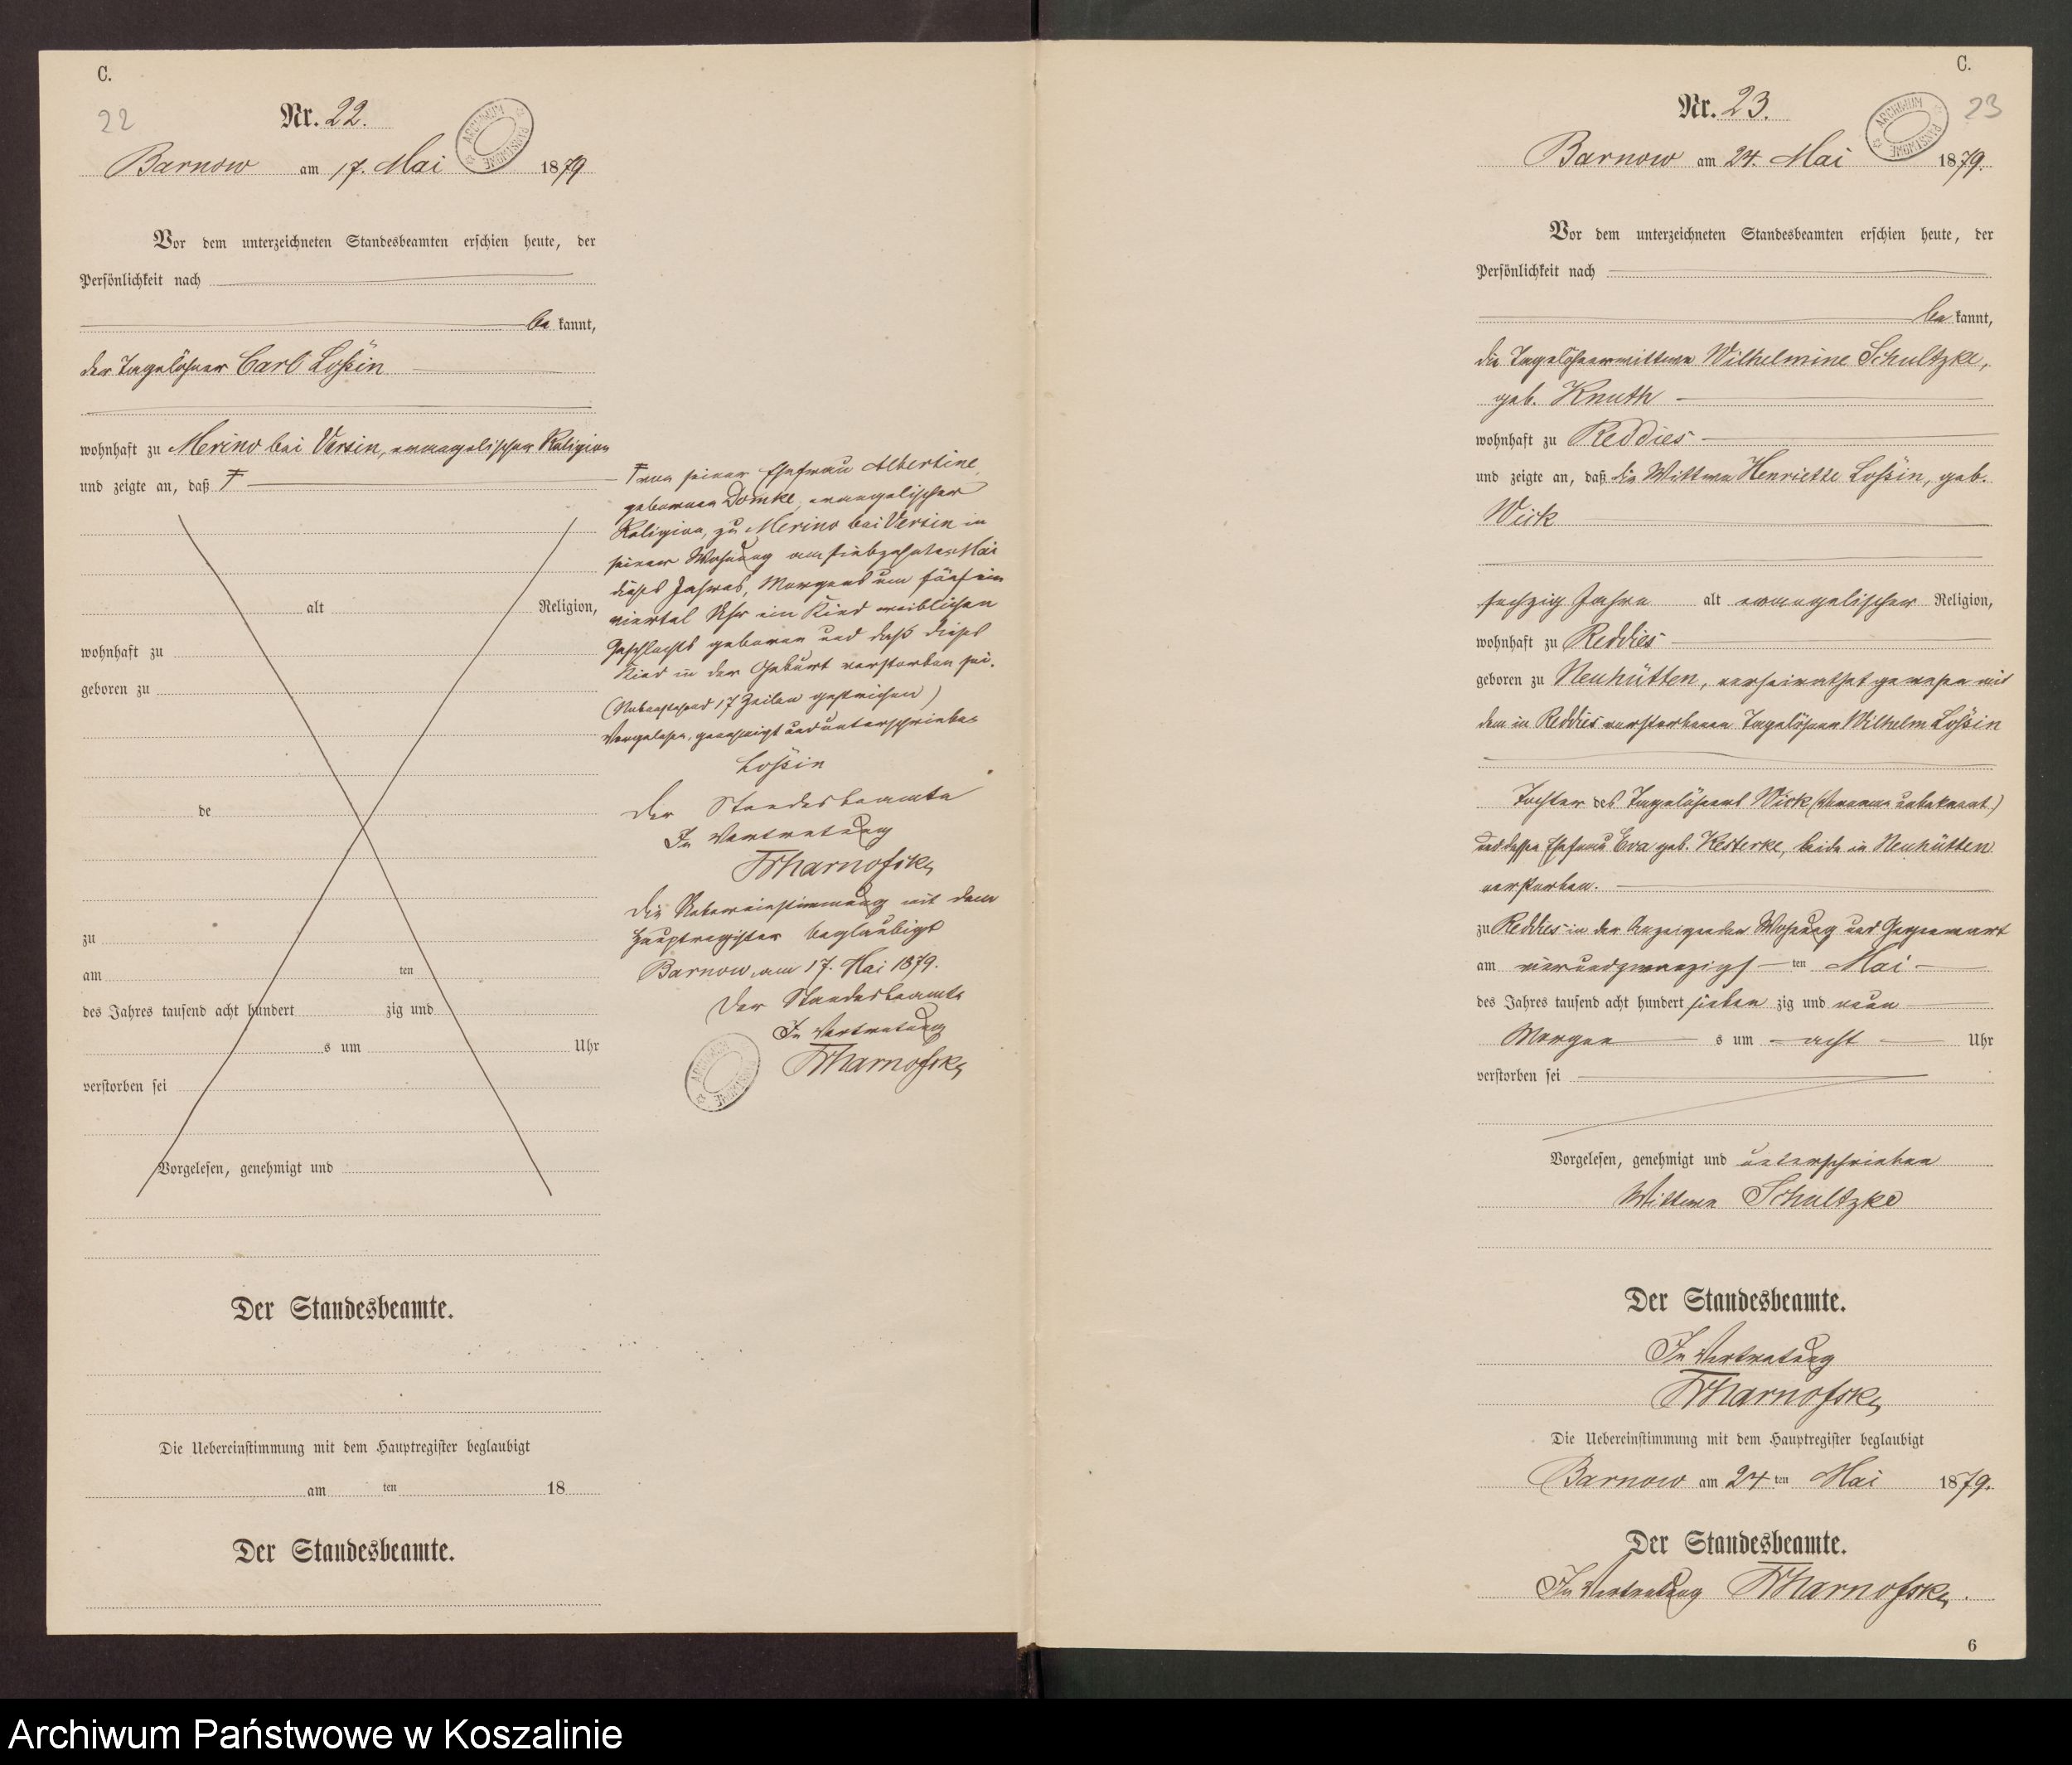 C.
22
Nr. 22.
ARCHIWUM PAŃSTWOWE
Barnow am 17. Mai 1879
Vor dem unterzeichneten Standesbeamten erschien heute, der
Persönlichkeit nach
be kannt,
der Tagelöhner Carl Loßin
wohnhaft zu Merino bei Versin, evangelischer Religion
und zeigte an, daß
alt Religion,
wohnhaft zu
geboren zu
de
zu
am ten
des Jahres tausend acht hundert zig und
s um Uhr
verstorben sei
Vorgelesen, genehmigt und
Der Standesbeamte.
Die Uebereinstimmung mit dem Hauptregister beglaubigt
am ten 18
Der Standesbeamte.
von seiner Ehefrau Albertine
geborenen Domke, evangelischer
Religion, zu Merino bei Versin in
seiner Wohnung am siebzehnten Mai
dieses Jahres, Morgens um fünf ein
viertel Uhr ein Kind weiblichen
Geschlechts geboren und daß dieses
Kind in der Geburt verstorben sei.
(Nebenstehend 17 Zeilen gestrichen)
Vorgelesen, genehmigt und unterschrieben
Loßin
Der Standesbeamte
In Vertretung
Die Uebereinstimmung mit dem
Hauptregister beglaubigt
Barnow, am 17. Mai 1879.
Der Standesbeamte
In Vertretung
ARCHIWUM PAŃSTWOWE
C.
23
Nr. 23.
ARCHIWUM PAŃSTWOWE
Barnow am 24. Mai 1879.
Vor dem unterzeichneten Standesbeamten erschien heute, der
Persönlichkeit nach
be kannt,
die Tagelöhnerwittwe Wilhelmine Schultzke,
geb. Knuth
wohnhaft zu Reddies
und zeigte an, daß die Wittwe Henriette Loßin, geb.
Wick
sechzig Jahre alt evangelischer Religion,
wohnhaft zu Reddies
geboren zu Neuhütten, verheirathet gewesen mit
dem in Reddies verstorbenen Tagelöhner Wilhelm Loßin
Tochter des Tagelöhners Wick (Vorname unbekannt)
und dessen Ehefrau Eva geb. Kesterke, beide in Neuhütten
verstorben.
zu Reddies in der Anzeigenden Wohnung und Gegenwart
am vierundzwanzigs ten Mai
des Jahres tausend acht hundert sieben zig und neun
Morgen s um acht Uhr
verstorben sei
Vorgelesen, genehmigt und unterschrieben
Wittwe Schultzke
Der Standesbeamte.
In Vertretung
Die Uebereinstimmung mit dem Hauptregister beglaubigt
Barnow am 24 ten Mai 1879.
Der Standesbeamte.
In Vertretung
6
Archiwum Państwowe w Koszalinie